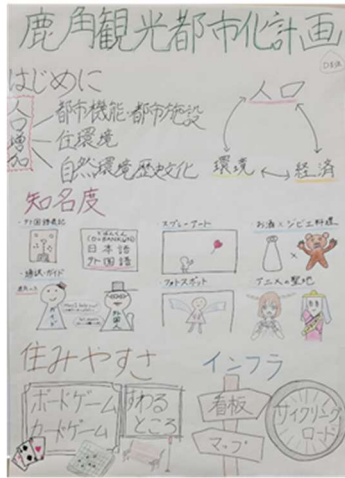 鹿角観光都市化計画
はじめに
人口増加
都市機能・都市施設
住環境
自然環境歴史文化
人口
環境
経済
知名度
・外国語表記
日本語
外国語
スプレーアート
お酒×ジビエ料理
・通訳・ガイド
ガイド
外国人
フォトスポット
アニメの聖地
住みやすさ
インフラ
ボードゲーム
カードゲーム
すわる
ところ
看板
マップ
サイクリング
ロード